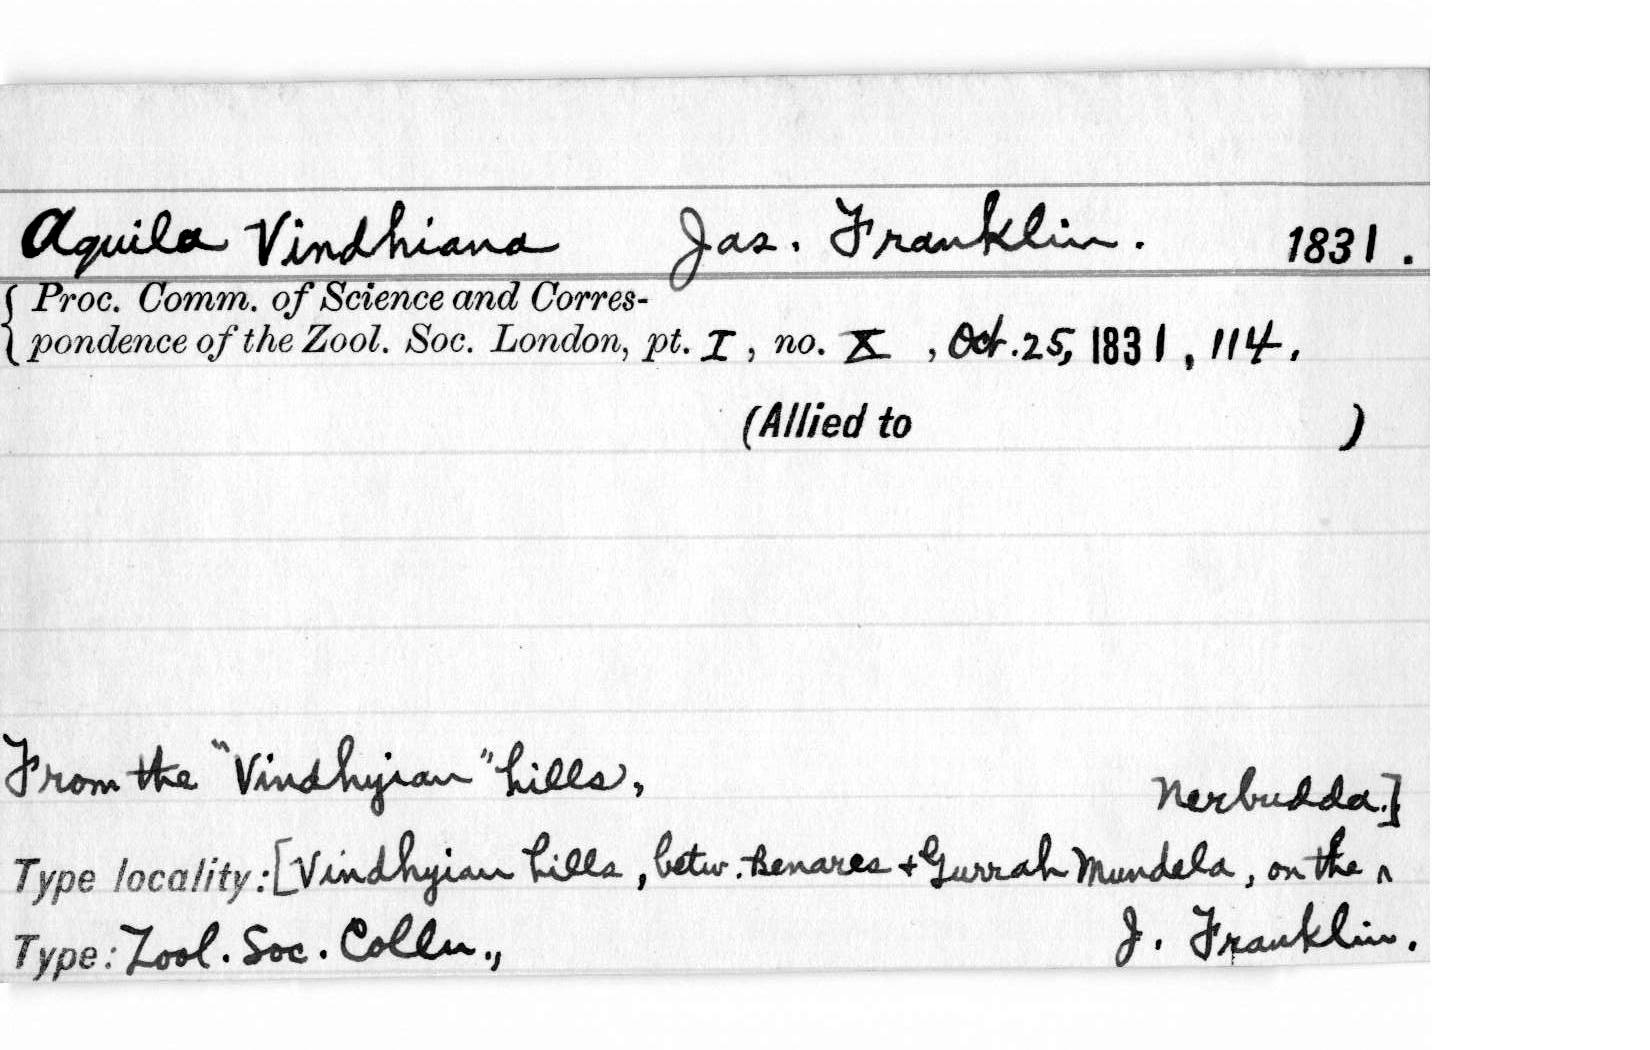 Aquila Vindhiana Jas. Franklin. 1831.
Proc. Comm. of Science and Corres-
pondence of the Zool. Soc. London, pt. I, no. X, Oct. 25, 1831, 114.
(Allied to )
From the "Vindhyian" hills,
Nerbudda.]
Type locality: [Vindhyian hills, betw. Benares + Gurrah Mundela, on the ^
Type: Zool. Soc. Colln., J. Franklin.